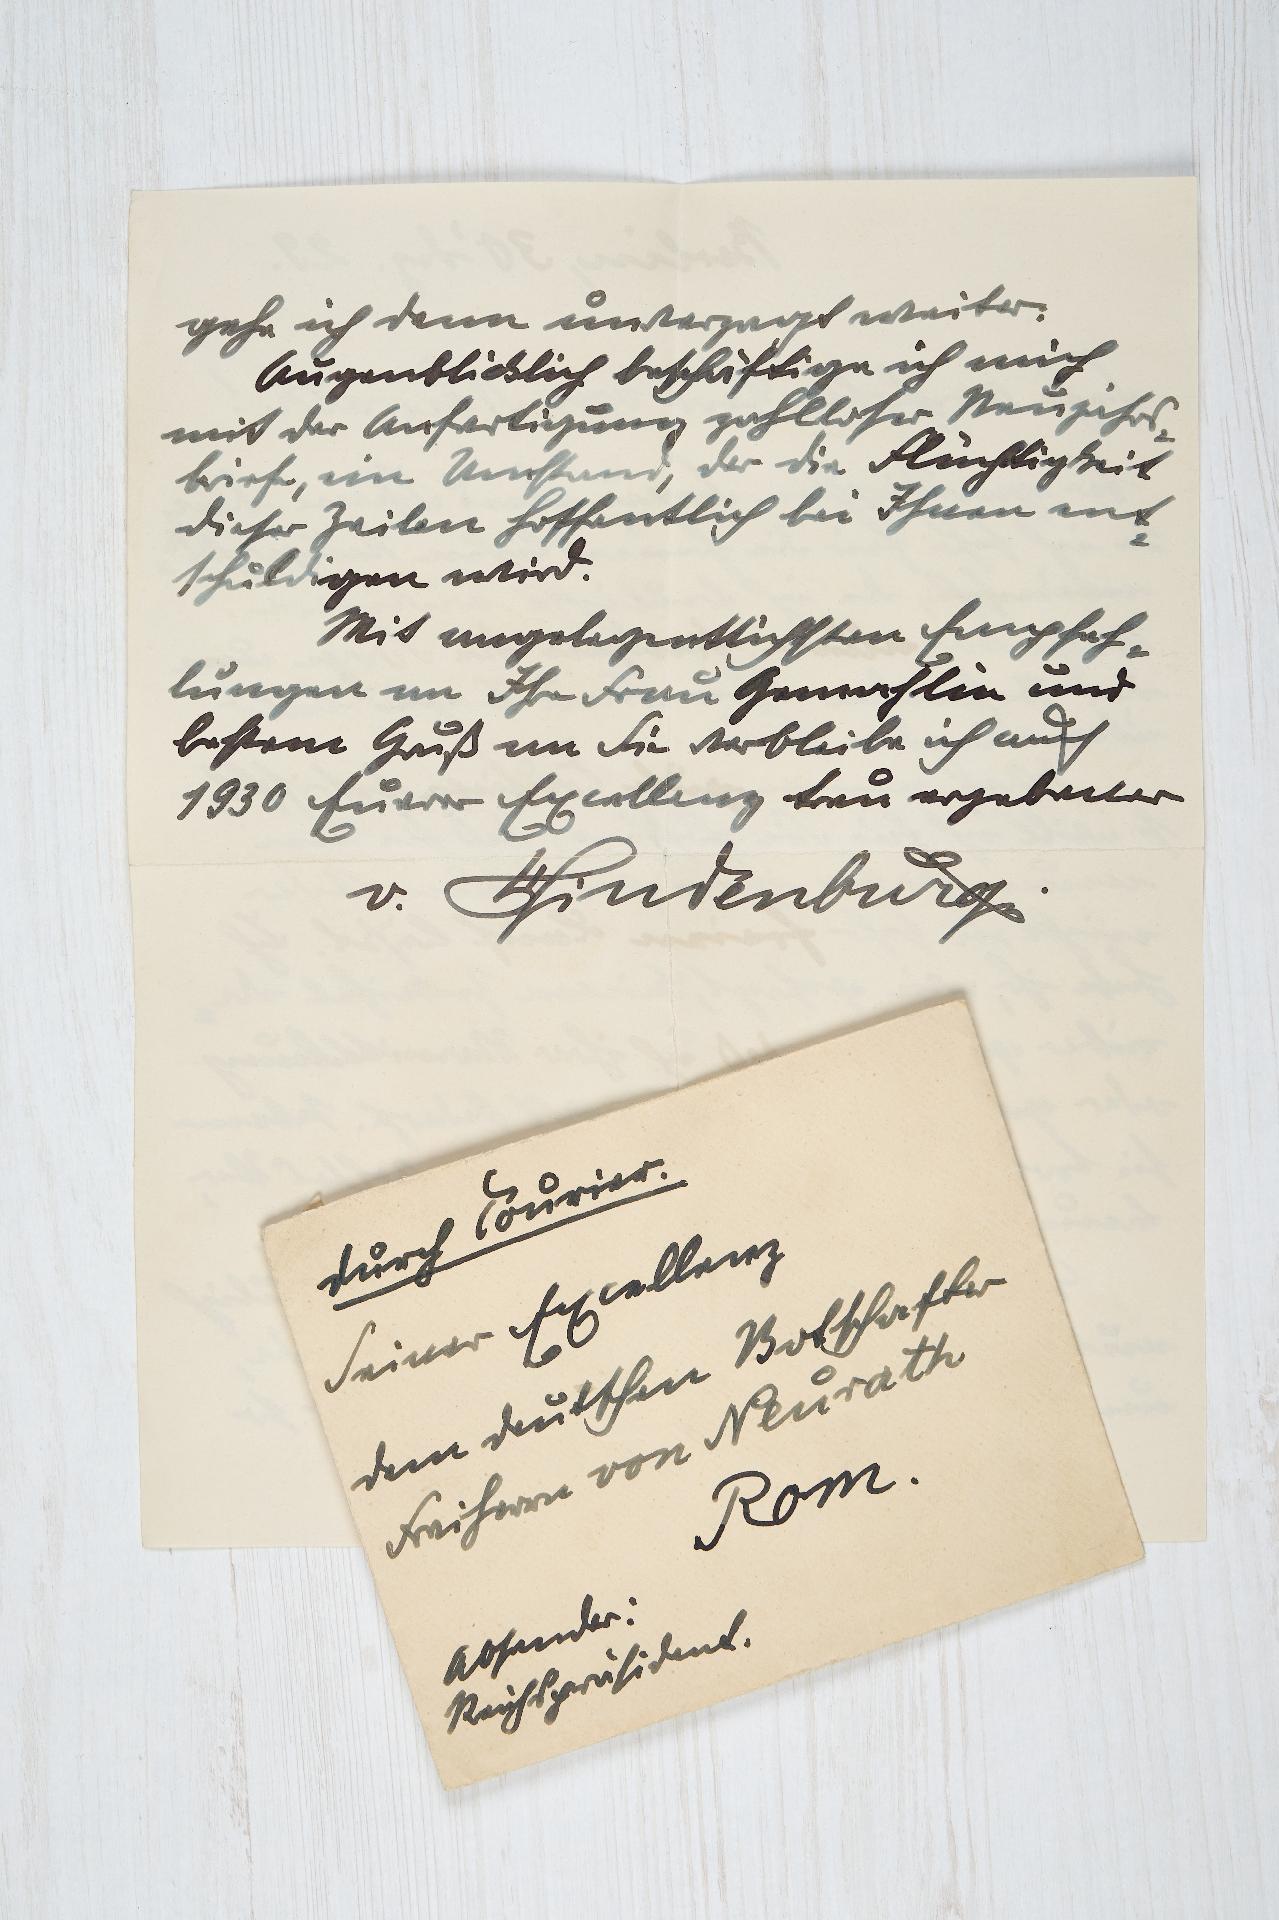 gehe ich denn unverzagt weiter.
Augenblicklich beschäftige ich mich
mit der Anfertigung zahlloser Neujahrs-
briefe, ein Umstand, der die Flüchtigkeit
dieser Zeilen hoffentlich bei Ihnen ent-
schuldigen wird.
Mit angelegentlichsten Empfeh-
lungen an Ihre Frau Gemahlin und
bestem Gruß an Sie verbleibe ich auch
1930 Euerer Excellenz treu ergebener
v. Hindenburg.
durch Courier.
Seiner Excellenz
dem deutschen Botschafter
Freiherrn von Neurath
Rom.
Absender:
Reichspräsident.